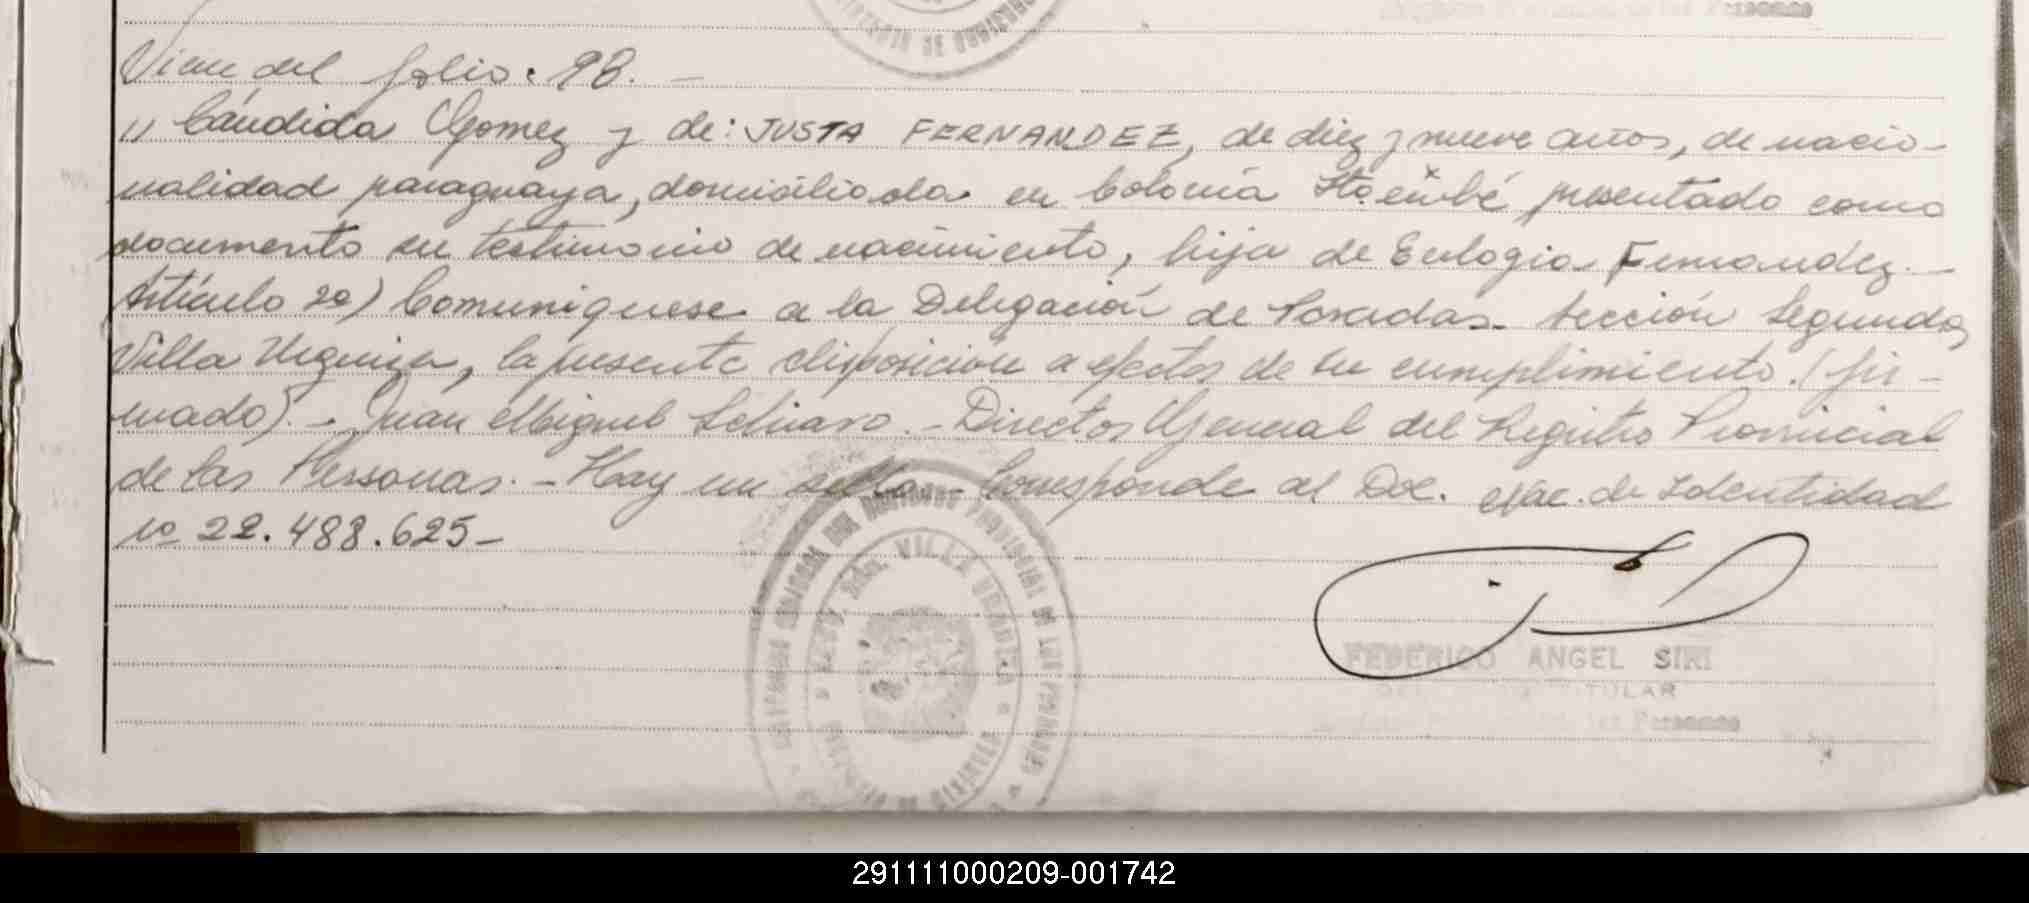 Viene del folio: 98. —
" Cándida Gomez y de: JUSTA FERNANDEZ, de diez y nueve años, de nacio-
nalidad paraguaya, domiciliada en Colonia presentado como
documento su testimonio de nacimiento, hija de Eulogia Fernandez. —
Artículo 2o) Comuniquese a la Delegación de Posadas - Sección Segunda,
Villa Urquiza, la presente disposición a efectos de su cumplimiento. (fir-
mado). - Juan Miguel - Director General del Registro Provincial
de las Personas. - Hay un sello. Corresponde al Doc. Nac. de Identidad
no 22.488.625 -
VILLA URQUIZA
FEDERICO ANGEL SIRI
TITULAR
las Personas
291111000209-001742